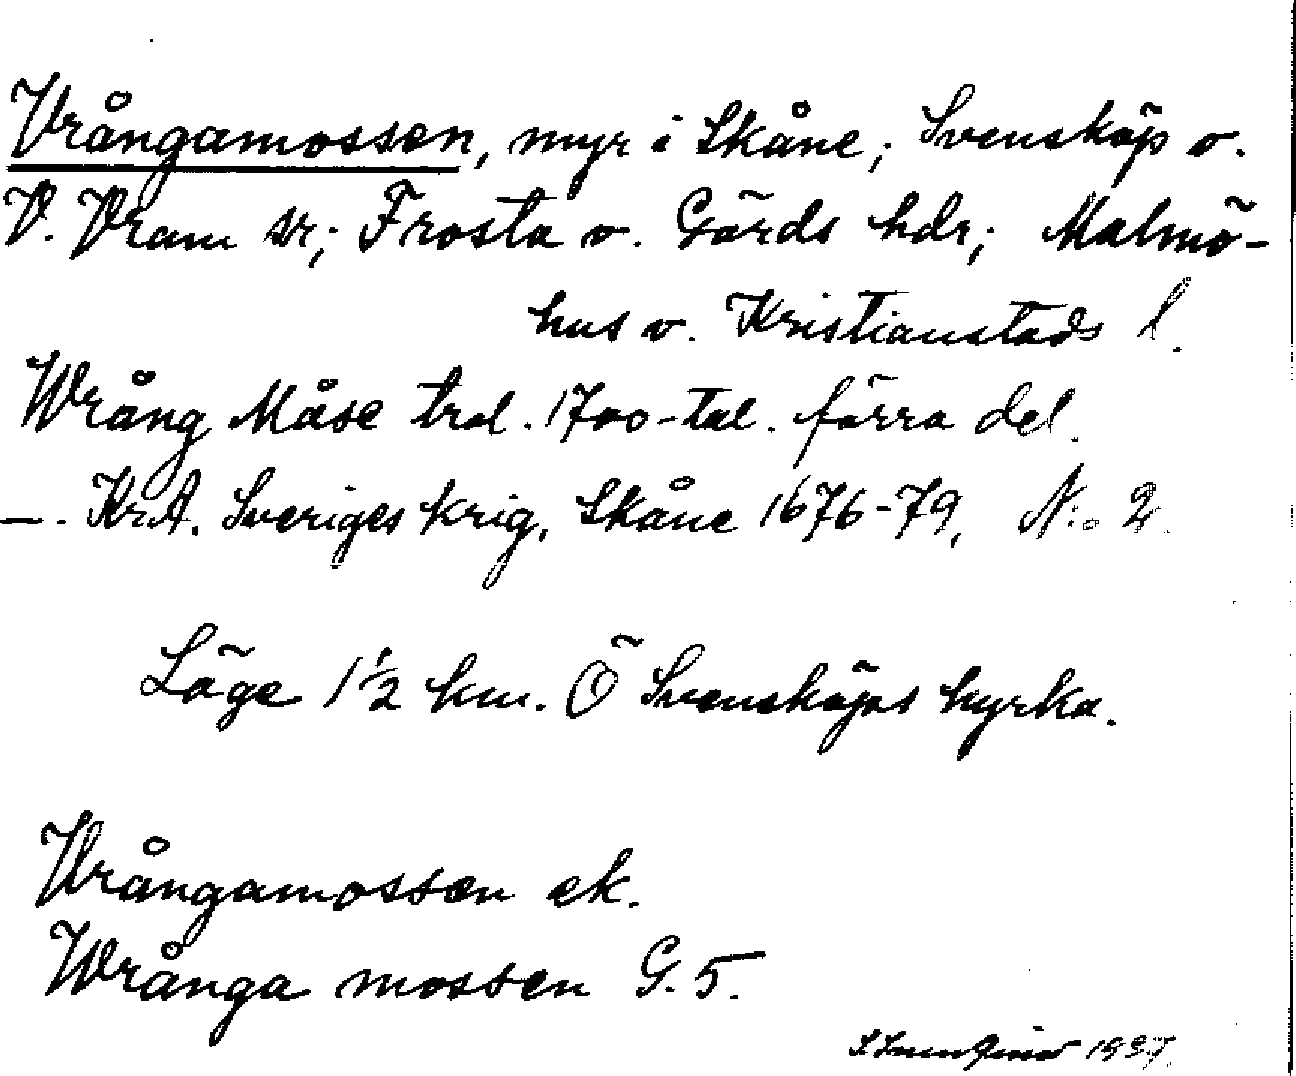 Vrångamossen, myr i Skåne; Svensköp o.
V. Vram sr; Frosta o. Gärds hdr; Malmö-
hus o. Kristianstads l.
Wrång Måse trol. 1700-tal. förra del.
—. KrA. Sveriges krig, Skåne 1676-79, N:o 2.
Läge 1½ km. Ö Svensköps kyrka.
Vrångamossen ek.
Wrånga mossen G. 5.
1937.